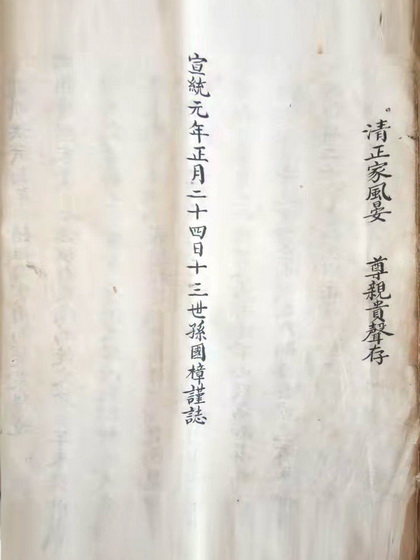 清正家風晏　尊親貴聲存
宣統元年正月二十四日十三世孫國樟謹誌